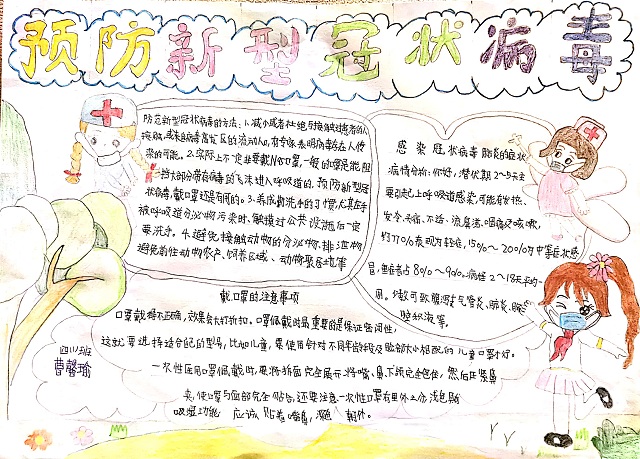 预防新型冠状病毒
防范新型冠状病毒的方法：1.减少或者杜绝直接触过患者的人
接触,或来自病毒高发区的流动人口,有专家表明病毒在人传
染的可能。2.实际上不一定非要戴N95口罩,一般的口罩能阻
挡大部分带有病毒的飞沫进入呼吸道的,预防新型冠
状病毒,戴口罩还是有用的。3.养成勤洗手的习惯,尤其在手
被呼吸道分泌物污染时、触摸过公共设施后一定
要洗手。4.避免接触动物的分泌物、排泄物
避免前往动物农产、饲养区域、动物聚居地等
感染冠状病毒肺炎的症状
病情分析：你好,潜伏期2~5天主
要引起上呼吸道感染,可能有发热、
发冷、头痛、不适、流鼻涕、咽痛及咳嗽,
约70%表现为轻症,15%~20%为中等症状感
冒,重症者占8%~9%。病程2~18天,平均一
周。少数可致急性支气管炎、肺炎、
胸腔积液等。
戴口罩的注意事项
口罩戴得不正确,效果会大打折扣。口罩佩戴时最重要的是保证密闭性,
这就要选择适合自己的型号,比如儿童,要使用针对不同年龄段及脸部大小相配的儿童口罩才行。
一次性医用口罩佩戴时,要将折面完全展开,将嘴、鼻、下颌完全包住,然后压紧鼻
夹,使口罩与面部完全贴合,还要注意一次性口罩有里外之分,浅色面
吸湿功能 应该贴着嘴鼻,深色 朝外。
四(1)班
曾馨瑜